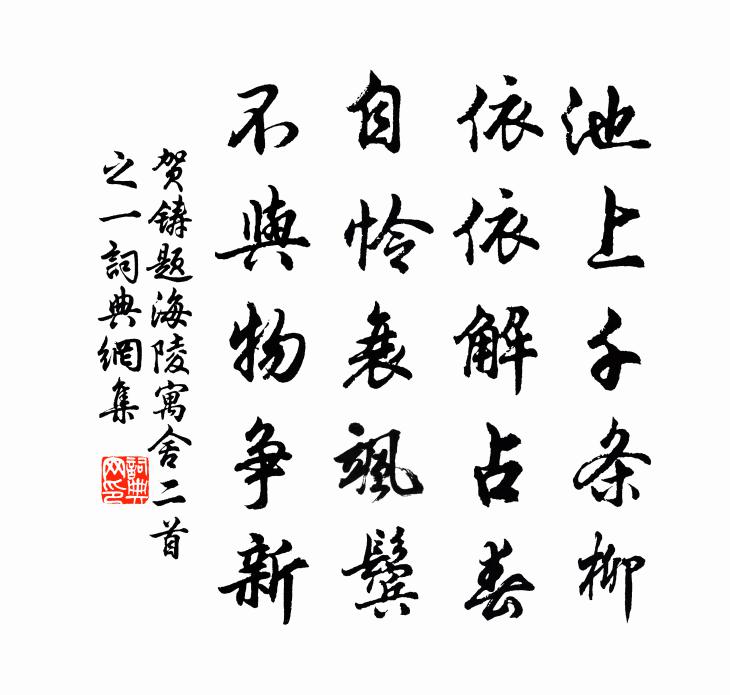 池上千条柳
依依解占春
自怜衰飒鬓
不與物争新
贺鑄题海陵寓舍二首
之一詞典網集
詞典網印